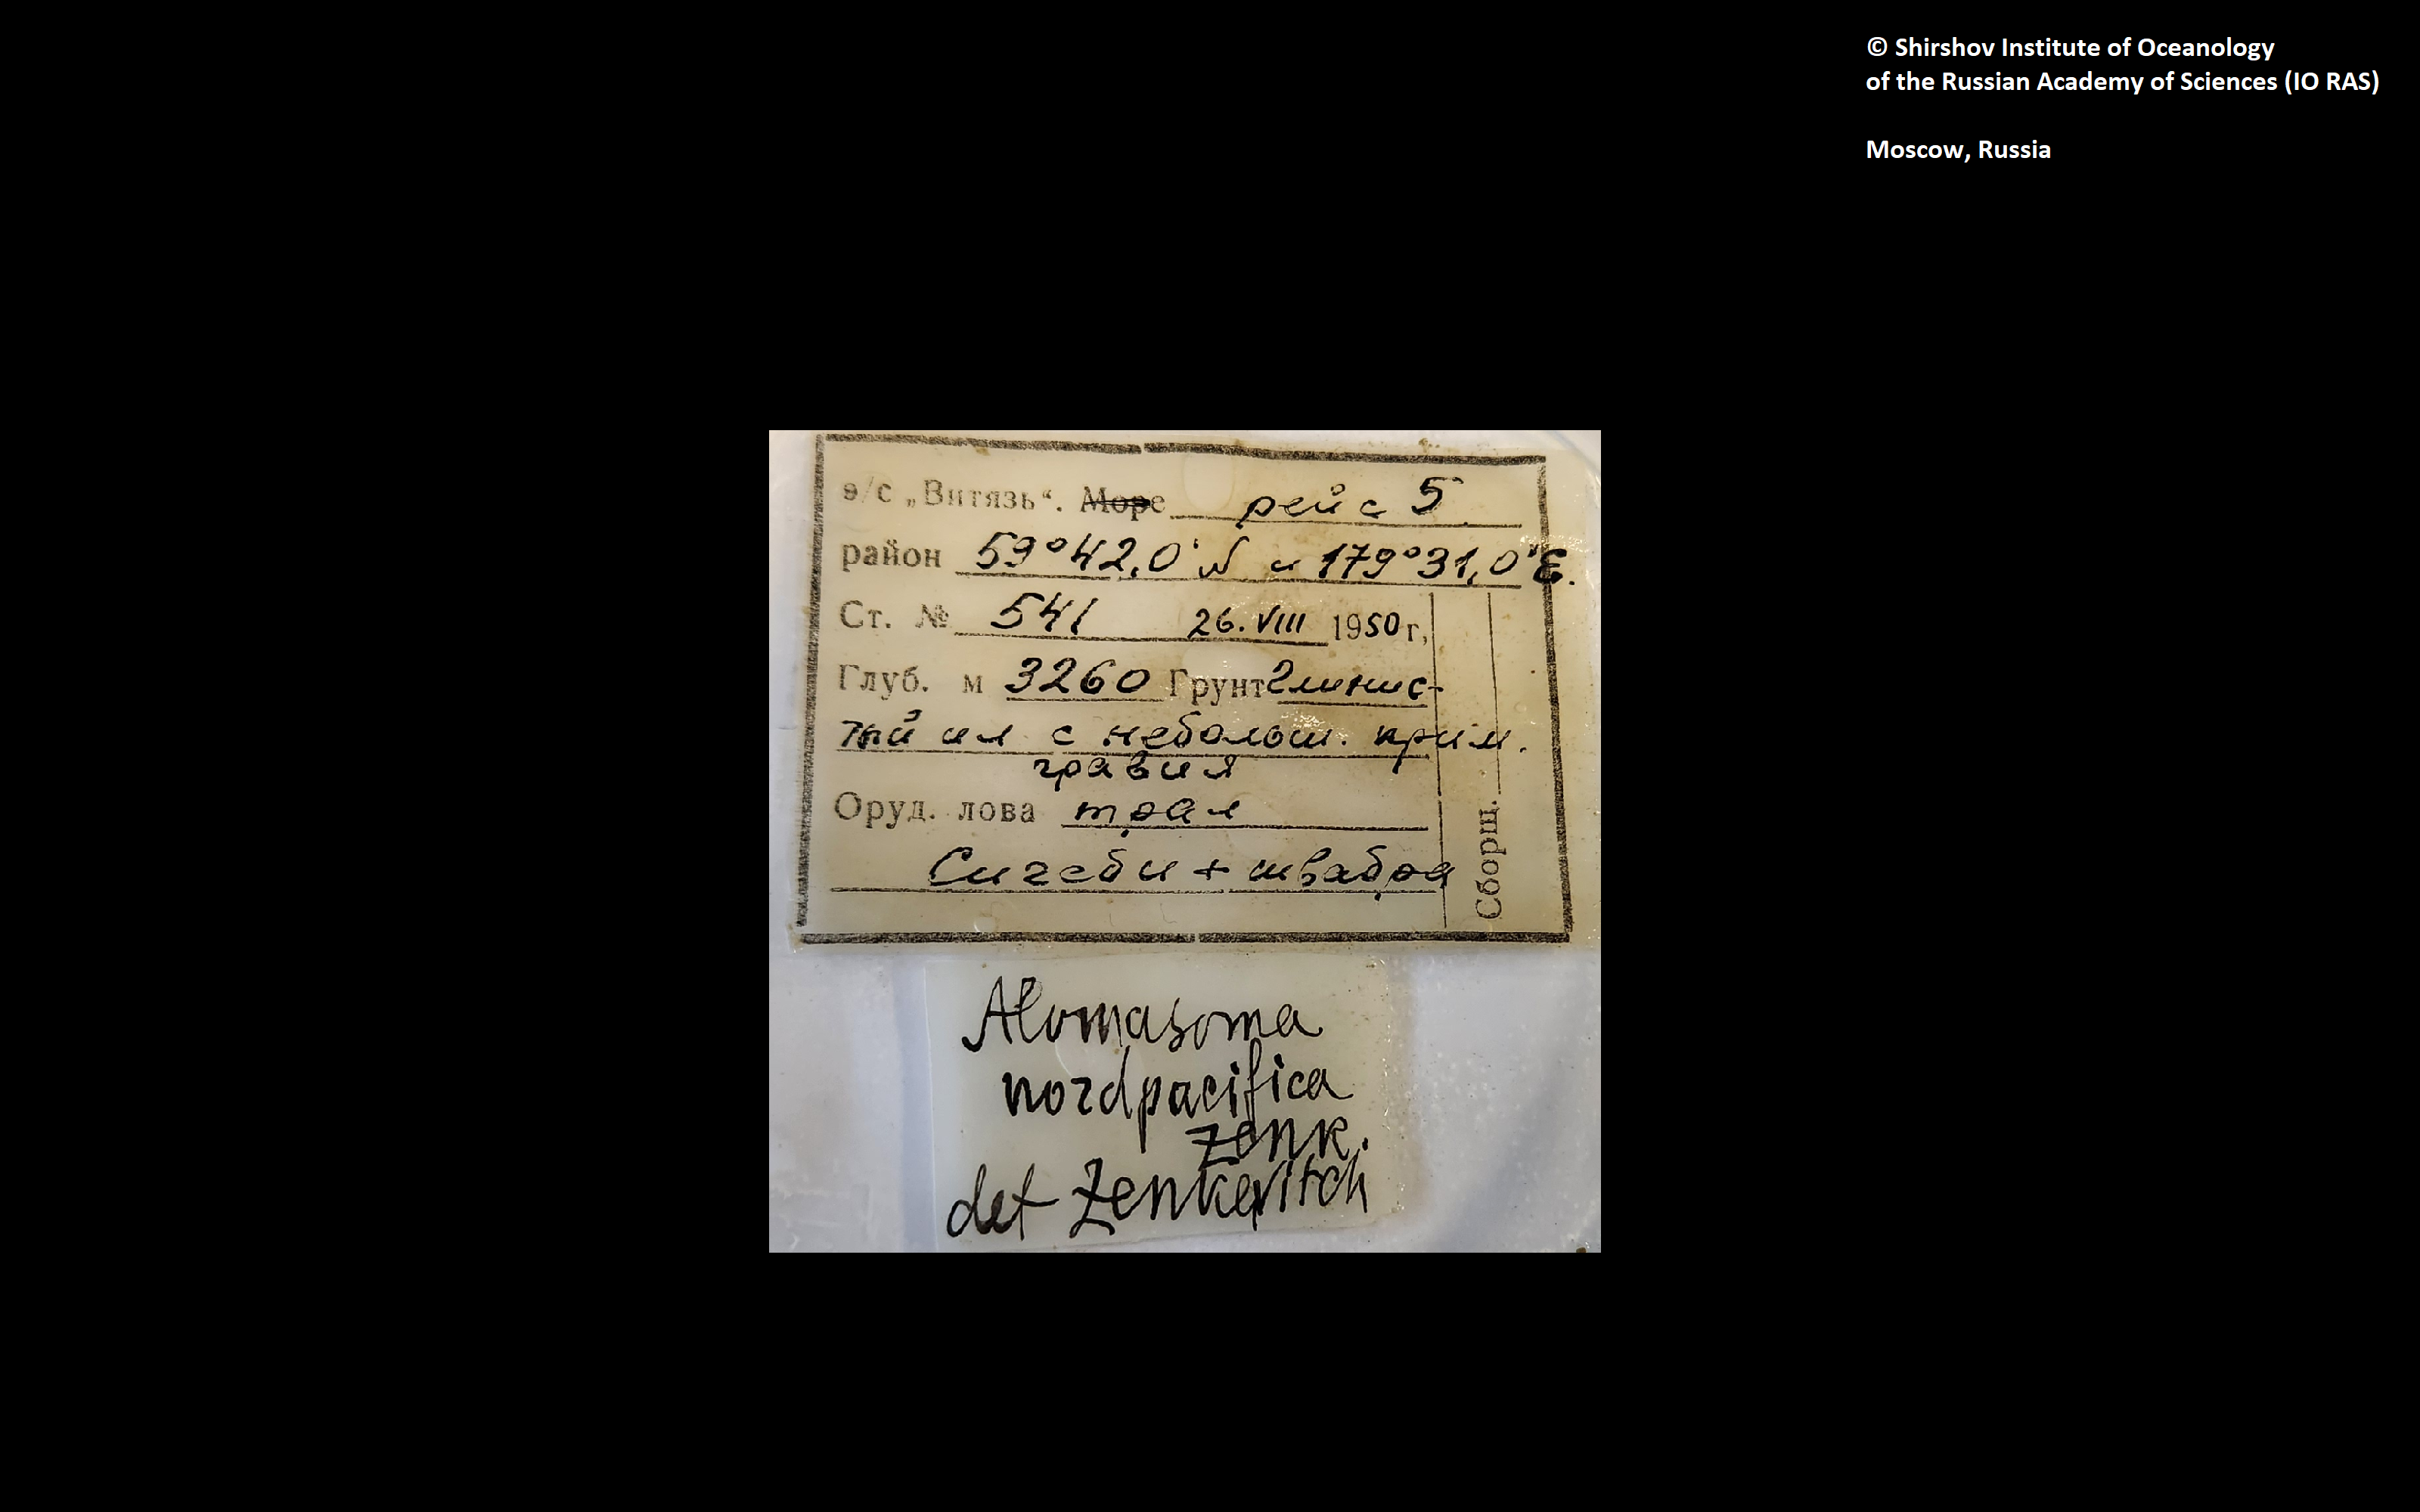 © Shirshov Institute of Oceanology
of the Russian Academy of Sciences (IO RAS)
Moscow, Russia
э/с „Витязь“. Море рейс 5
район 59°42,0' N и 179°31,0'E.
Ст. № 541 26.VIII 1950 г,
Глуб. м 3260 Грунт Глинис-
тый ил с небольш. прим.
гравия
Оруд. лова трал
Сигсби + швабра
Сборщ.
Alomasoma
nordpacifica
Zenk.
det Zenkevitch